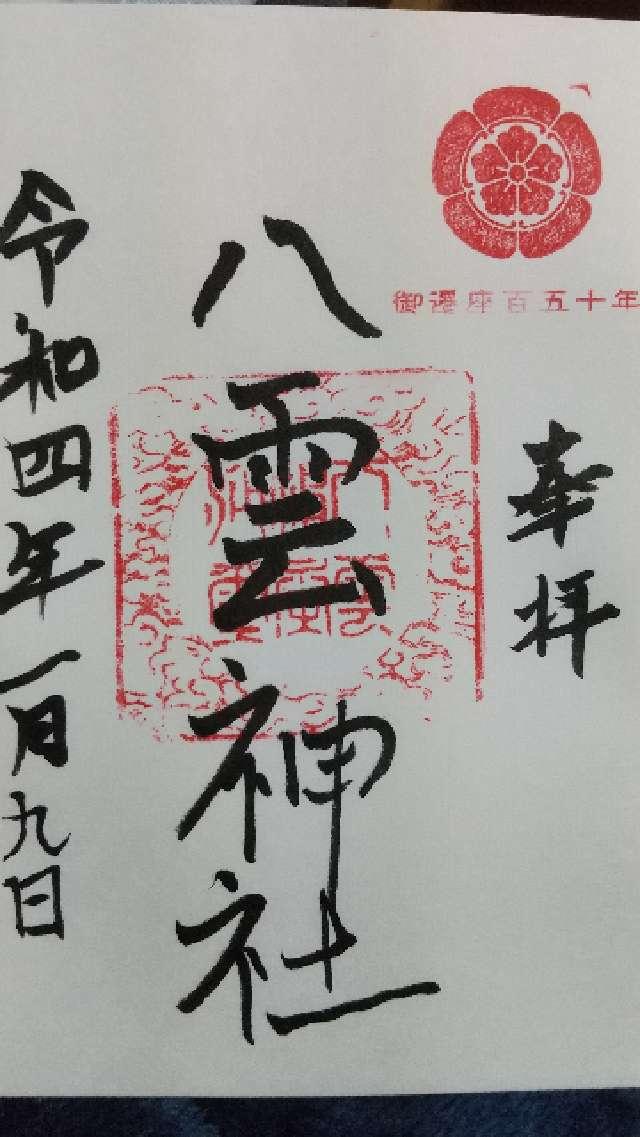 御遷座百五十年
奉拝
八雲神社
令和四年一月九日